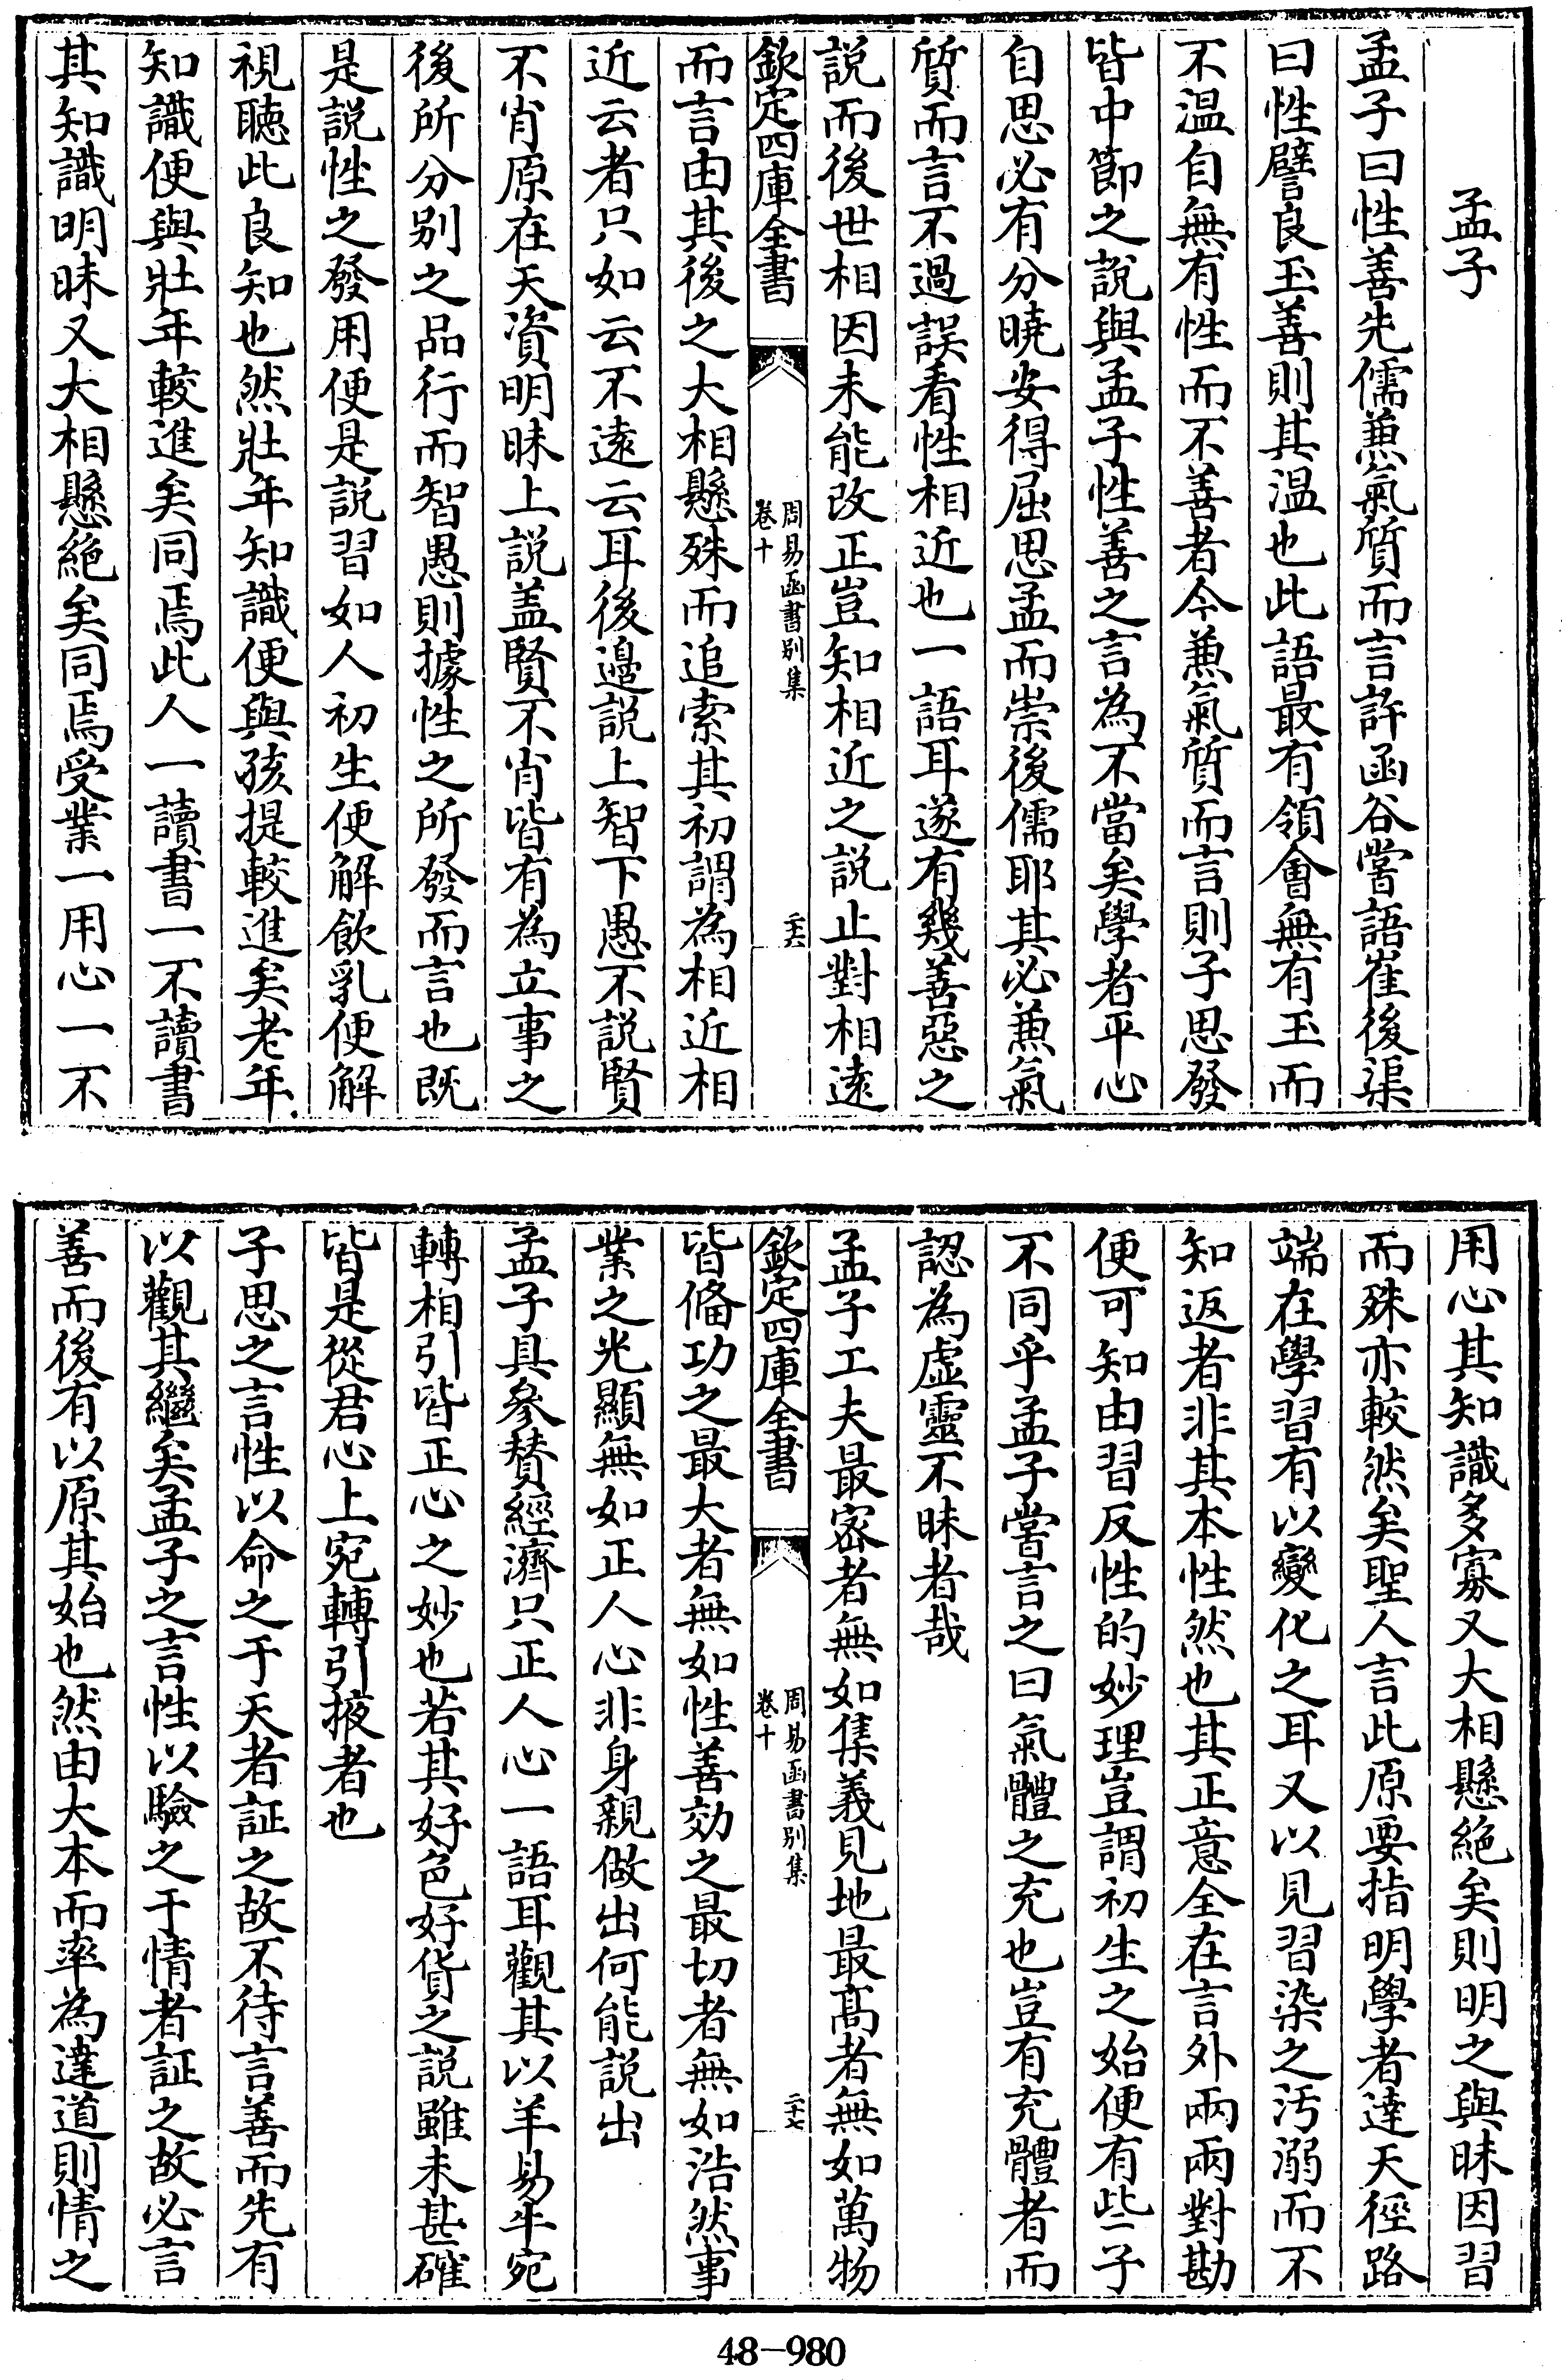 孟子
孟子曰性善先儒兼氣質而言許函谷嘗語崔後渠
曰性譬良玉善則其温也此語最有領會無有玉而
不温自無有性而不善者今兼氣質而言則子思發
皆中節之說與孟子性善之言為不當矣學者平心
自思必有分曉安得屈思孟而崇後儒耶其必兼氣
質而言不過誤看性相近也一語耳遂有幾善惡之
說而後世相因未能改正豈知相近之說止對相遠
欽定四庫全書
周易函書别集
卷十
二十六
而言由其後之大相懸殊而追索其初謂為相近相
近云者只如云不遠云耳後邊説上智下愚不説賢
不肖原在天資明昧上説盖賢不肖皆有為立事之
後所分别之品行而智愚則據性之所發而言也既
是説性之發用便是説習如人初生便解飲乳便解
視聽此良知也然壯年知識便與孩提較進矣老年
知識便與壯年較進矣同焉此人一讀書一不讀書
其知識明昧又大相懸絶矣同焉受業一用心一不
用心其知識多寡又大相懸絶矣則明之與昧因習
而殊亦較然矣聖人言此原要指明學者達天徑路
端在學習有以變化之耳又以見習染之汚溺而不
知返者非其本性然也其正意全在言外兩兩對勘
便可知由習反性的妙理豈謂初生之始便有些子
不同乎孟子嘗言之曰氣體之充也豈有充體者而
認為虛靈不昧者哉
孟子工夫最密者無如集義見地最髙者無如萬物
欽定四庫全書
周易函書别集
卷十
二十七
皆偹功之最大者無如性善効之最切者無如浩然事
業之光顯無如正人心非身親做出何能説出
孟子具參贊經濟只正人心一語耳觀其以羊易牛宛
轉相引皆正心之妙也若其好色好貨之説雖未甚確
皆是從君心上宛轉引掖者也
子思之言性以命之于天者証之故不待言善而先有
以觀其繼矣孟子之言性以驗之于情者証之故必言
善而後有以原其始也然由大本而率為達道則情之
48-980